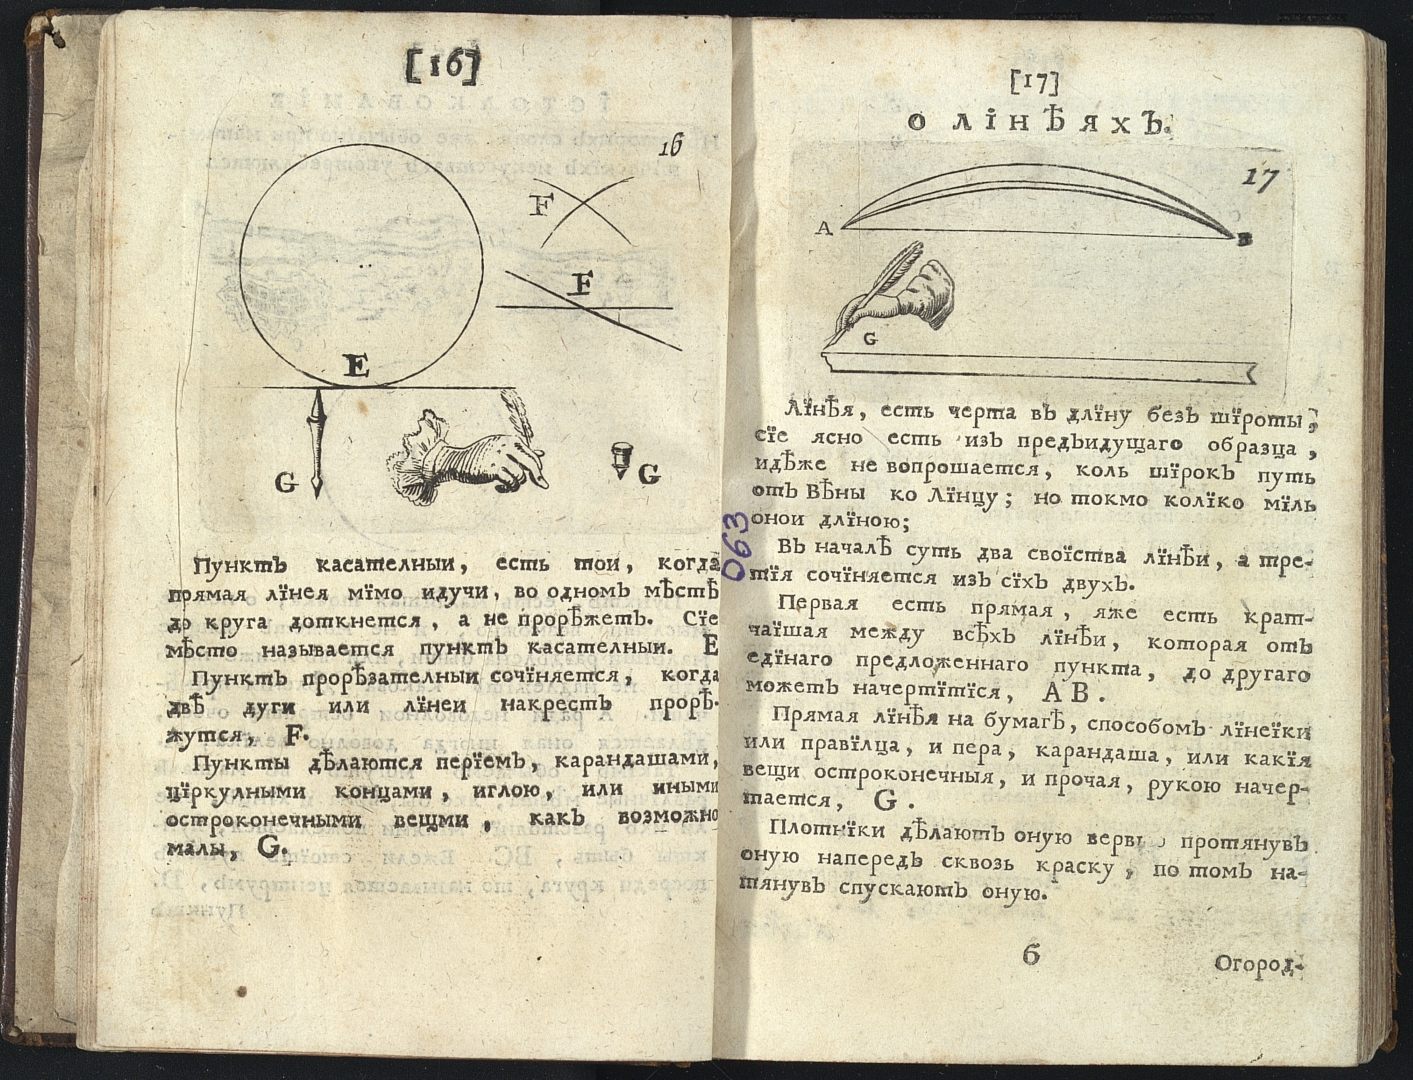 [16]
16
F
F
E
G
G
Пунктъ касателныи, есть тои, когда
прямая лїнея мїмо идучи, во одномъ мѣстѣ
до круга доткнется, а не прорѣжетъ. Сїе
мѣсто называется пунктъ касателныи. E
Пунктъ прорѣзателныи сочїняется, когда
двѣ дуги или лїнеи накрестъ прорѣ-
жутся, F.
Пункты дѣлаются перїемъ, карандашами,
цїркулными концами, иглою, или иными
остроконечными вещми, какъ возможно
малы, G.
063
[17]
О ЛІНѢЯХЪ.
17
A
B
G
Лїнѣя, есть черта въ длїну безъ шїроты;
сїе ясно есть изъ предъидущаго образца,
идѣже не вопрошается, коль шїрокъ путь
отъ Вѣны ко Лїнцу; но токмо колїко мїль
онои длїною;
Въ началѣ суть два своїства лїнѣи, а тре-
тїя сочїняется изъ сїхъ двухъ.
Первая есть прямая, яже есть крат-
чаїшая между всѣхъ лїнѣи, которая отъ
едїнаго предложеннаго пункта, до другаго
можетъ начертїтїся, AB.
Прямая лїнѣя на бумагѣ, способомъ лїнеїки
или правїлца, и пера, карандаша, или какїя
вещи остроконечныя, и прочая, рукою начер-
тается, G.
Плотнїки дѣлаютъ оную протянувъ
оную напередъ сквозь краску, по томъ на-
тянувъ спускаютъ оную.
б
Огород-